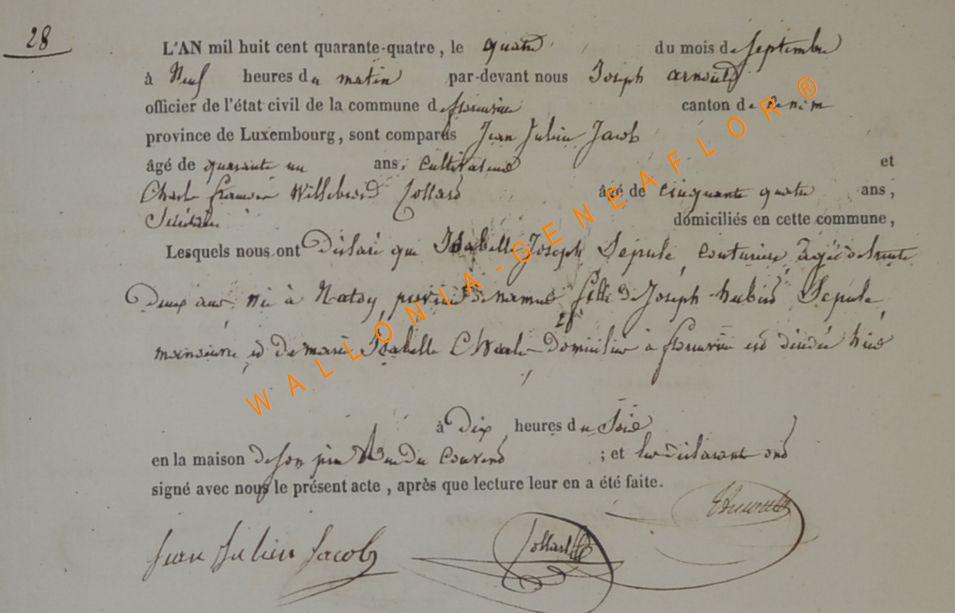 28
L'AN mil huit cent quarante-quatre, le quatre du mois de Septembre
à Neuf heures du matin par-devant nous Joseph Arnould
officier de l'état civil de la commune de florenville canton de
province de Luxembourg, sont comparus Jean Julien Jacob
âgé de quarante un ans, Cultivateur et
Charles françois Willebrord Collard âgé de cinquante quatre ans,
domiciliés en cette commune,
Lesquels nous ont Déclaré que Isabelle Joseph Sepulé, couturière, âgée de trente
Deux ans née à Natoy province de namur fille de Joseph hubert Sepulé
et de marie Isabelle Charles domiciliée à florenville est décédée hier
à Dix heures du Soir
en la maison de son père Rue du Couvent ; et les déclarants ont
signé avec nous le présent acte, après que lecture leur en a été faite.
Jean Julien Jacob Collard Arnould
WALLONIA-GENEAFLOR®